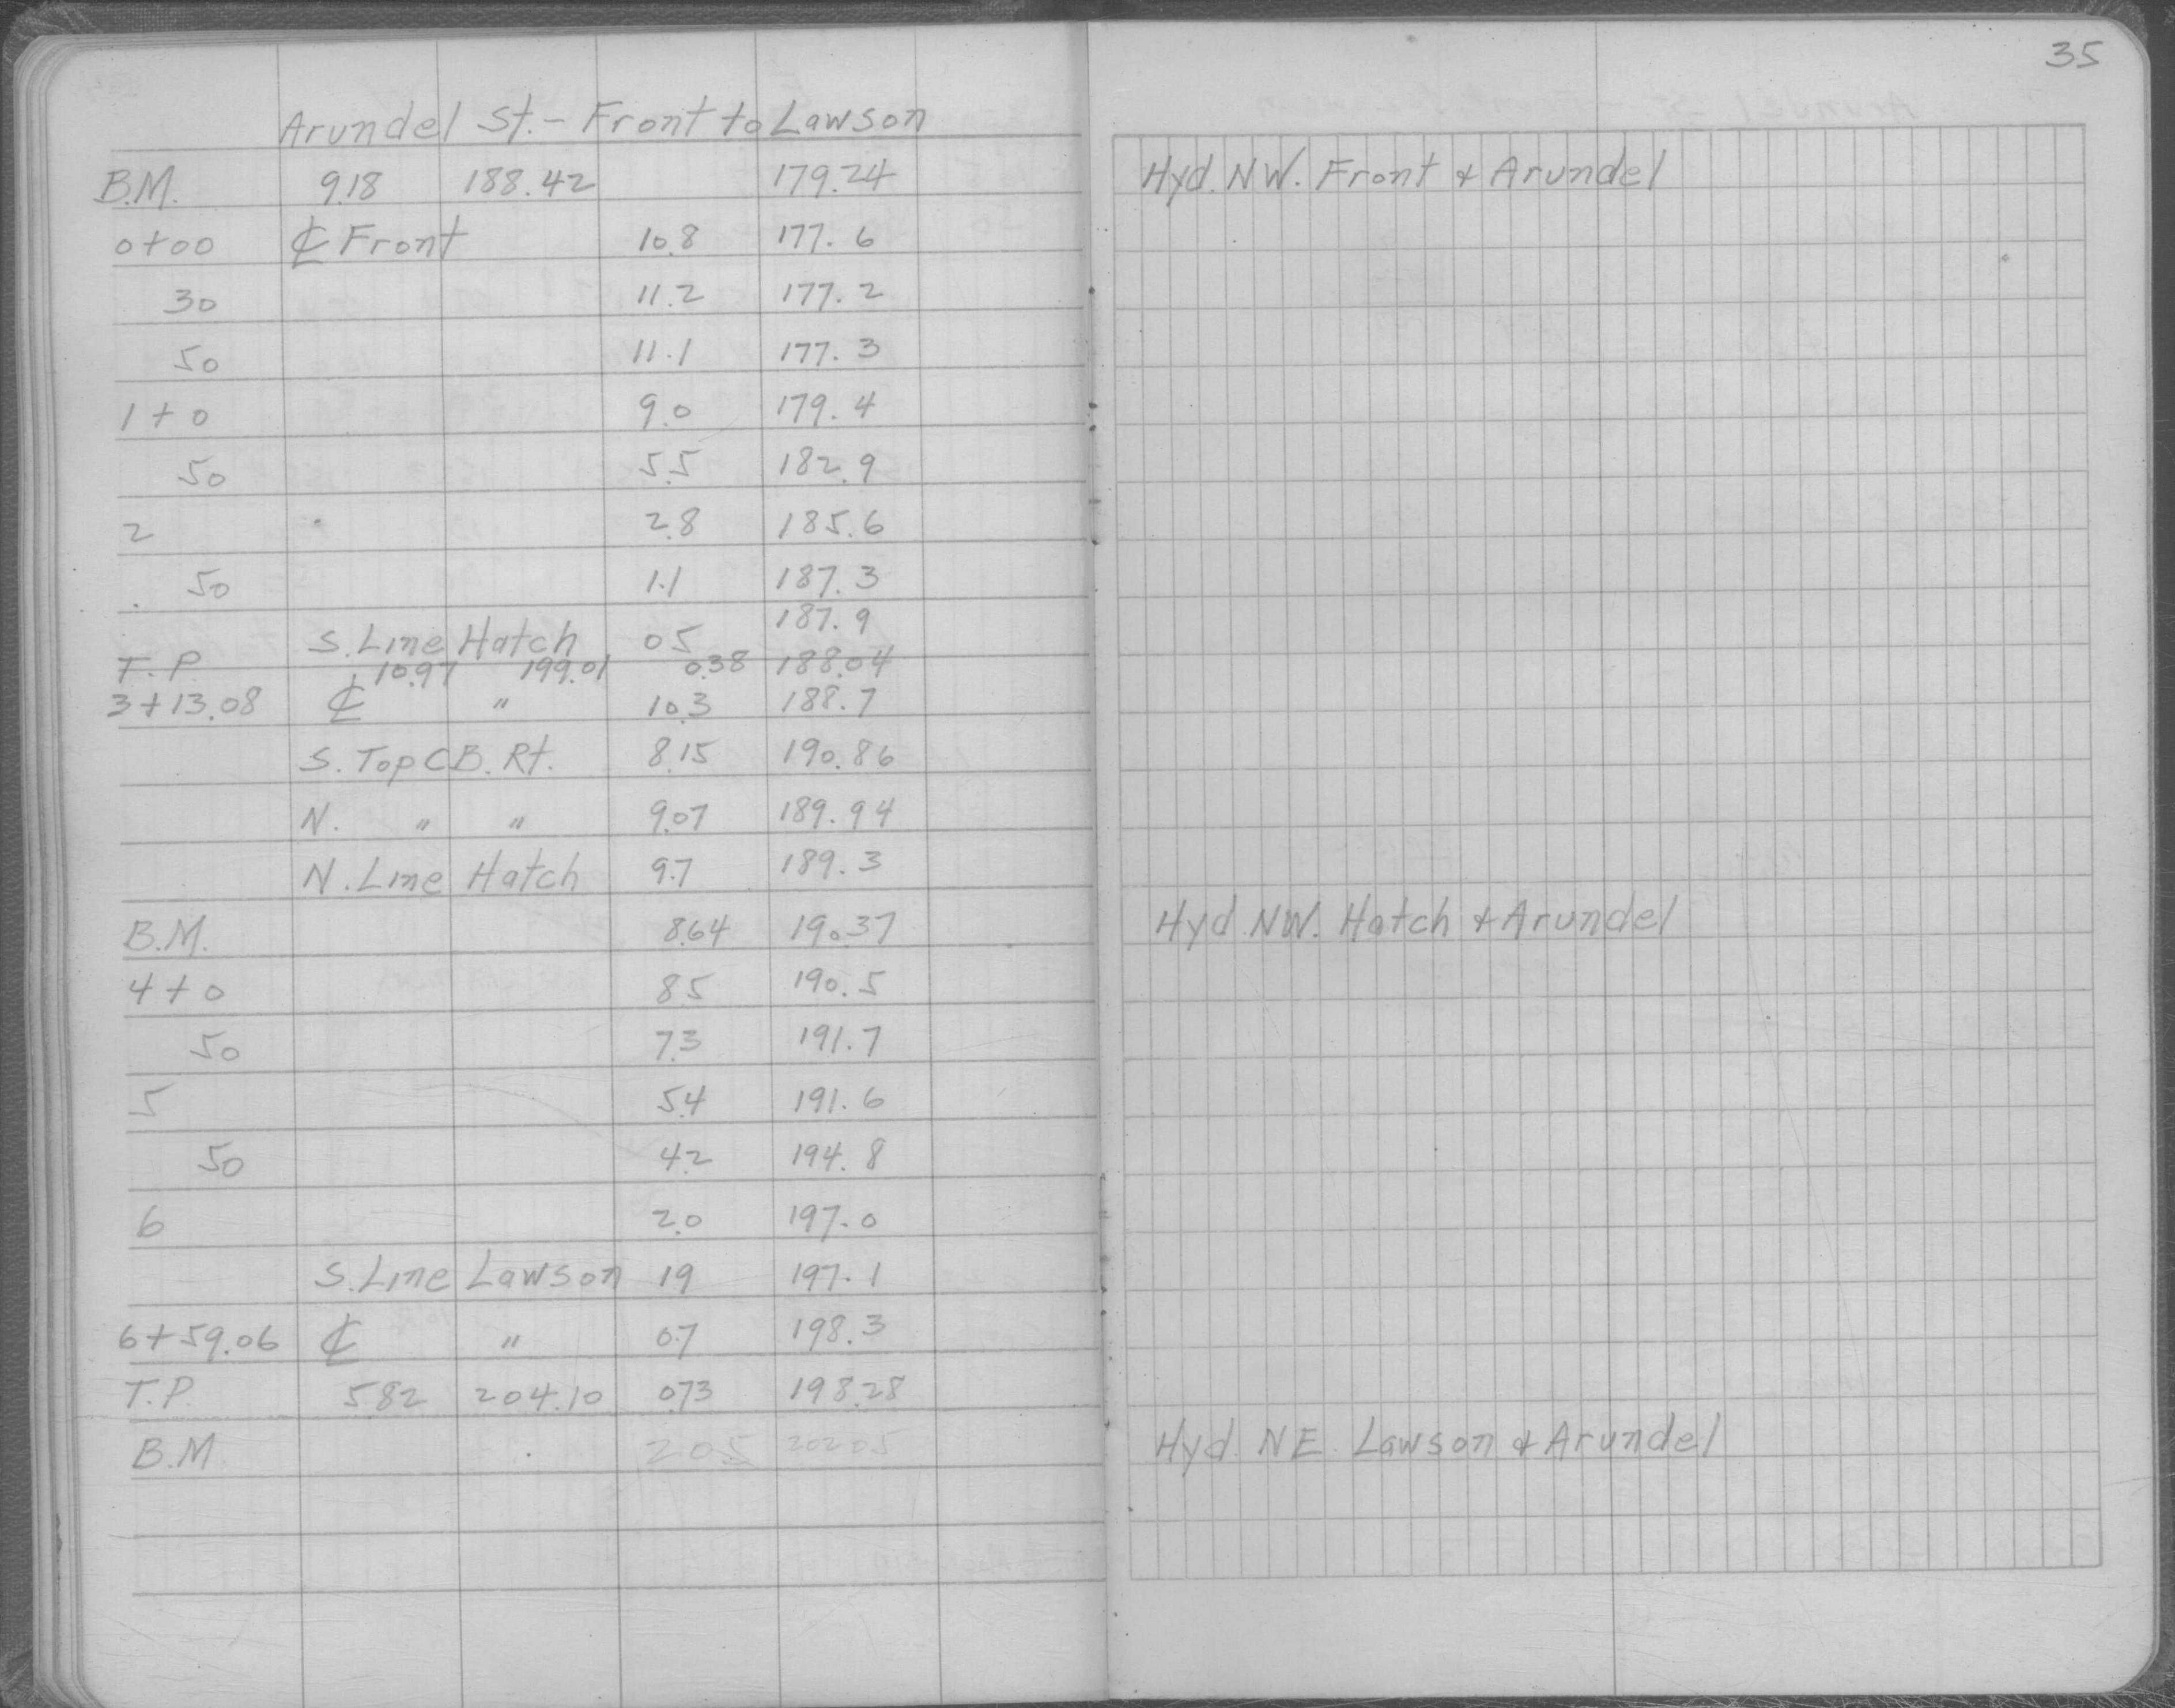 35
Arundel St. - Front to Lawson
B.M. 9.18 188.42 179.24 Hyd. NW. Front & Arundel
0+00 ℄ Front 10.8 177.6
30 11.2 177.2
50 11.1 177.3
1+0 9.0 179.4
50 5.5 182.9
2 2.8 185.6
50 1.1 187.3
S. Line Hatch 0.5 187.9
T.P. 10.97 199.01 0.38 188.04
3+13.08 ℄ " 10.3 188.7
S. Top C.B. Rt. 8.15 190.86
N. " " 9.07 189.94
N. Line Hatch 9.7 189.3
B.M. 8.64 190.37 Hyd. NW. Hatch & Arundel
4+0 8.5 190.5
50 7.3 191.7
5 5.4 191.6
50 4.2 194.8
6 2.0 197.0
S. Line Lawson 1.9 197.1
6+59.06 ℄ " 0.7 198.3
T.P. 5.82 204.10 0.73 198.28
B.M. 2.05 202.05 Hyd. NE. Lawson & Arundel